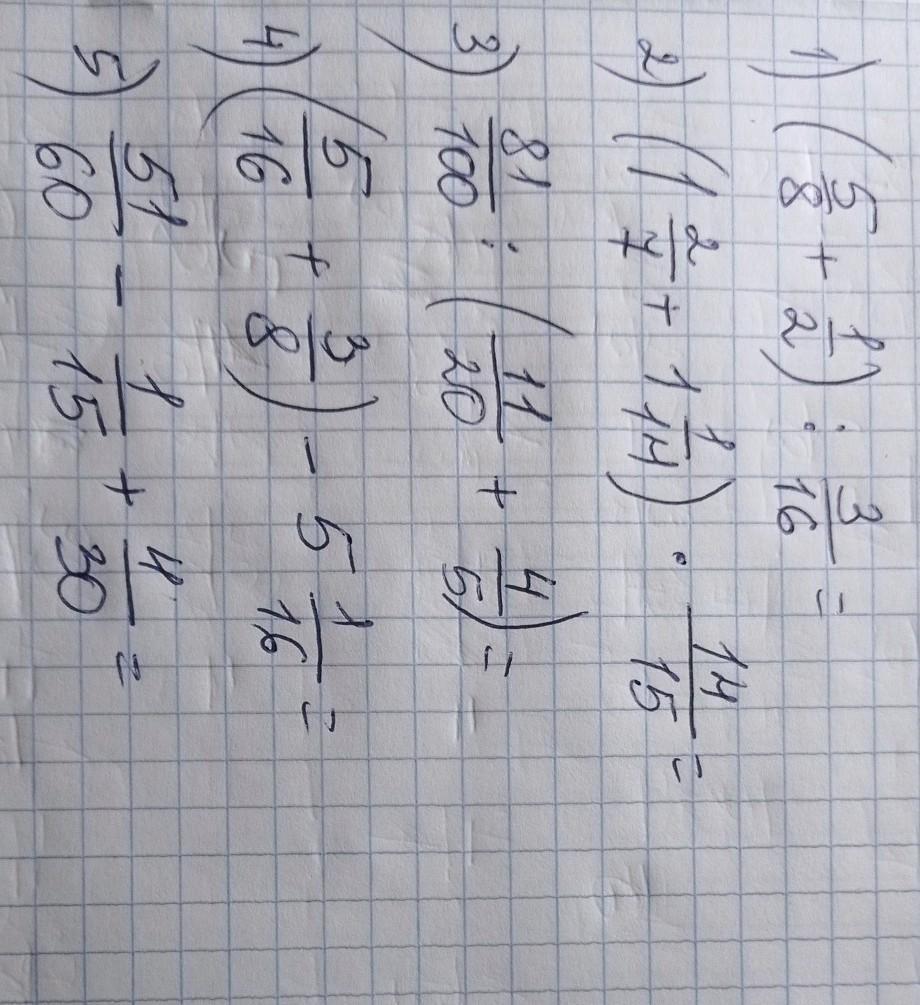 1) (5/8 + 1/2) : 3/16 =
2) (1 2/7 + 1 1/14) · 14/15 =
3) 81/100 : (11/20 + 4/5) =
4) (5/16 + 3/8) - 5 1/16 =
5) 51/60 - 1/15 + 4/30 =